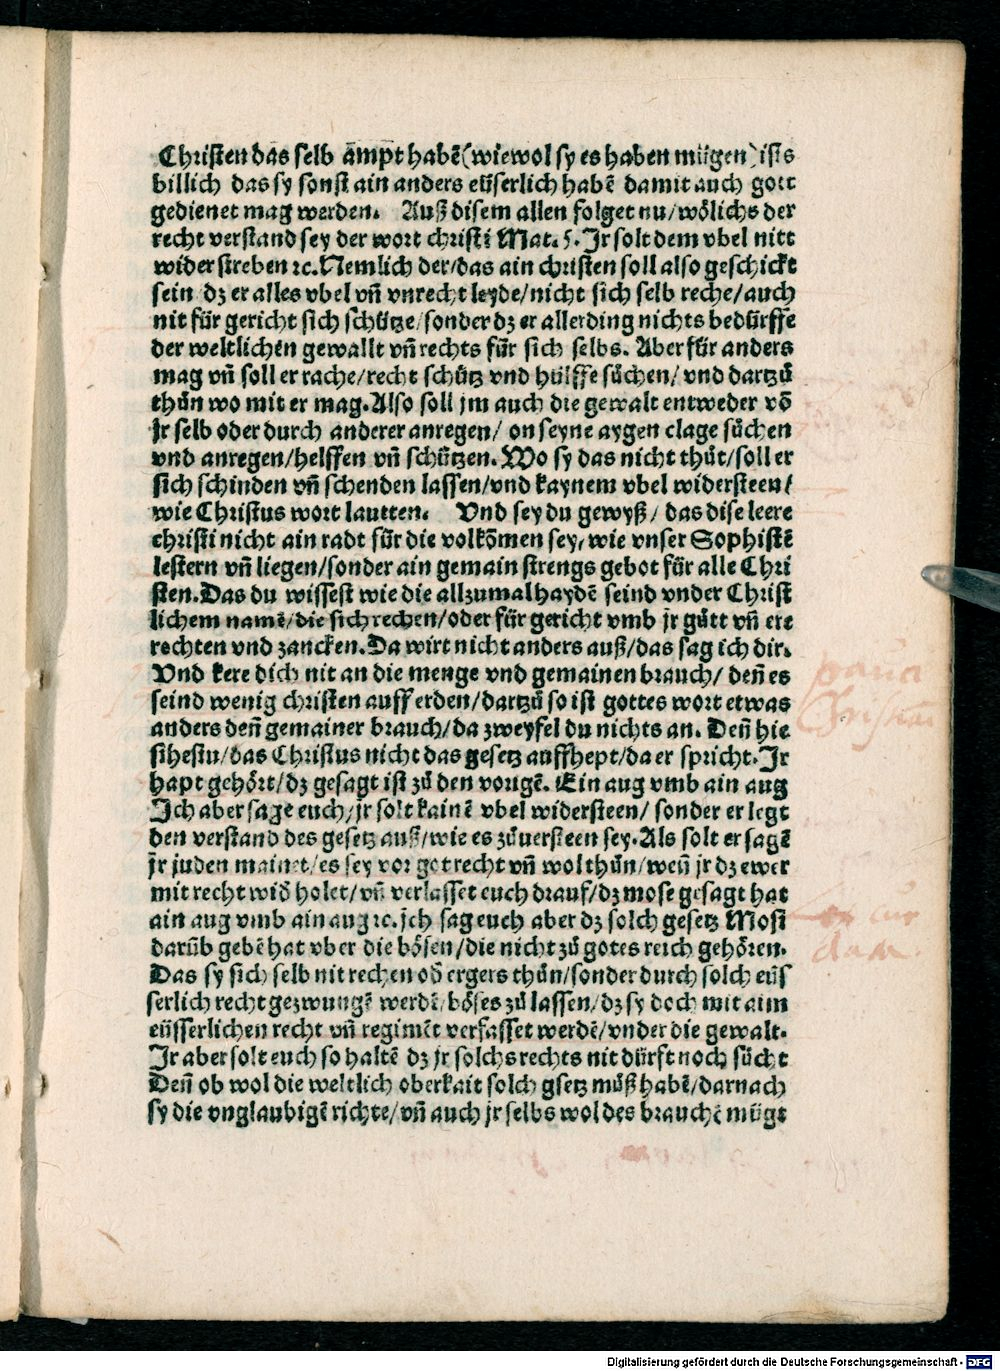 Christen das selb ampt habē(wiewol sy es haben mügen)ists
billich das sy sonst ain anders eüserlich habē damit auch gott
gedienet mag werden. Auß disem allen folget nu/wölichs der
recht verstand sey der wort christi Mat. 5. Jr solt dem vbel nitt
widerstreben ꝛc. Nemlich der/das ain christen soll also geschickt
sein dz er alles vbel vn̄ vnrecht leyde/nicht sich selb reche/auch
nit für gericht sich schütze/sonder dz er allerding nichts bedürffe
der weltlichen gewallt vn̄ rechts für sich selbs. Aber für anders
mag vn̄ soll er rache/recht schütz vnd hülffe sůchen/ vnd dartzů
thůn wo mit er mag. Also soll jm auch die gewalt entweder vō
jr selb oder durch anderer anregen/ on seyne aygen clage sůchen
vnd anregen/helffen vn̄ schützen. Wo sy das nicht thůt/soll er
sich schinden vn̄ schenden lassen/vnd kaynem vbel widersteen/
wie Christus wort lautten. Vnd sey du gewyß/ das dise leere
christi nicht ain radt für die volkōmen sey, wie vnser Sophistē
lestern vn̄ liegen/sonder ain gemain strengs gebot für alle Chri
sten. Das du wissest wie die allzumal haydē seind vnder Christ
lichem namē/die sich rechen/oder für gericht vmb jr gůtt vn̄ ere
rechten vnd zancken. Da wirt nicht anders auß/das sag ich dir.
Vnd kere dich nit an die menge vnd gemainen brauch/ den̄ es
seind wenig christen auff erden/dartzů so ist gottes wort etwas
anders den̄ gemainer brauch/da zweyfel du nichts an. Den̄ hie
sihestu/das Christus nicht das gesetz auffhept/da er spricht. Jr
hapt gehört/dz gesagt ist zů den vorigē. Ein aug vmb ain aug
Jch aber sage euch/jr solt kainē vbel widersteen/ sonder er legt
den verstand des gesetz auß/wie es zůuersteen sey. Als solt er sagē
jr juden mainet/es sey vor got recht vn̄ wol thůn/wen̄ jr dz ewer
mit recht wid̄ holet/vn̄ verlasset euch drauf/dz mose gesagt hat
ain aug vmb ain aug ꝛc. jch sag euch aber dz solch gesetz Mosi
darüb gebē hat vber die bösen/die nicht zů gotes reich gehören.
Das sy sich selb nit rechen od̄ ergers thůn/sonder durch solch eüs
serlich recht gezwungē werdē/böses zů lassen/dz sy doch mit aim
eüsserlichen recht vn̄ regimēt verfasset werdē/vnder die gewalt.
Jr aber solt euch so haltē dz jr solchs rechts nit dürft noch sücht
Den̄ ob wol die weltlich oberkait solch gsetz můß habē/darnach
sy die vnglaubigē richte/vn̄ auch jr selbs wol des brauchē mügt
pauci
Christiani
Digitalisierung gefördert durch die Deutsche Forschungsgemeinschaft - DFG